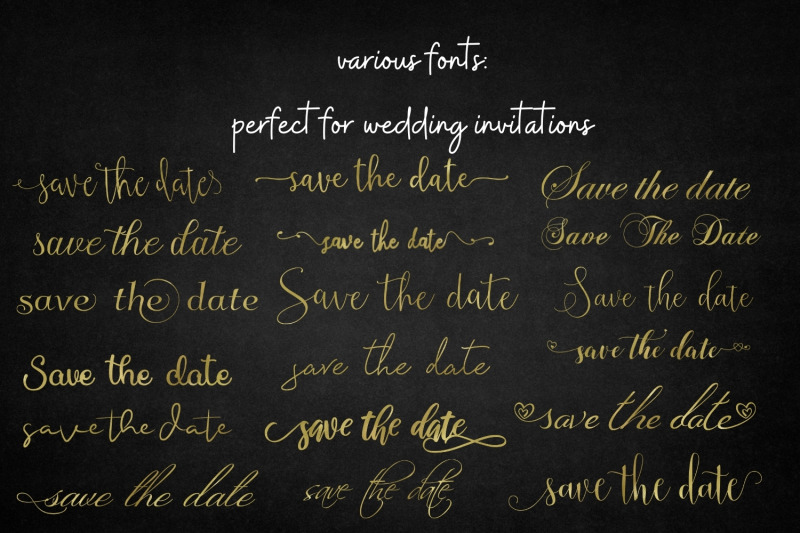 various fonts:
perfect for wedding invitations
save the dates
save the date
save the date
Save the date
save the date
save the date
save the date
save the date
Save the date
save the date
save the date
save the date
Save the date
Save The Date
Save the date
save the date
save the date
save the date